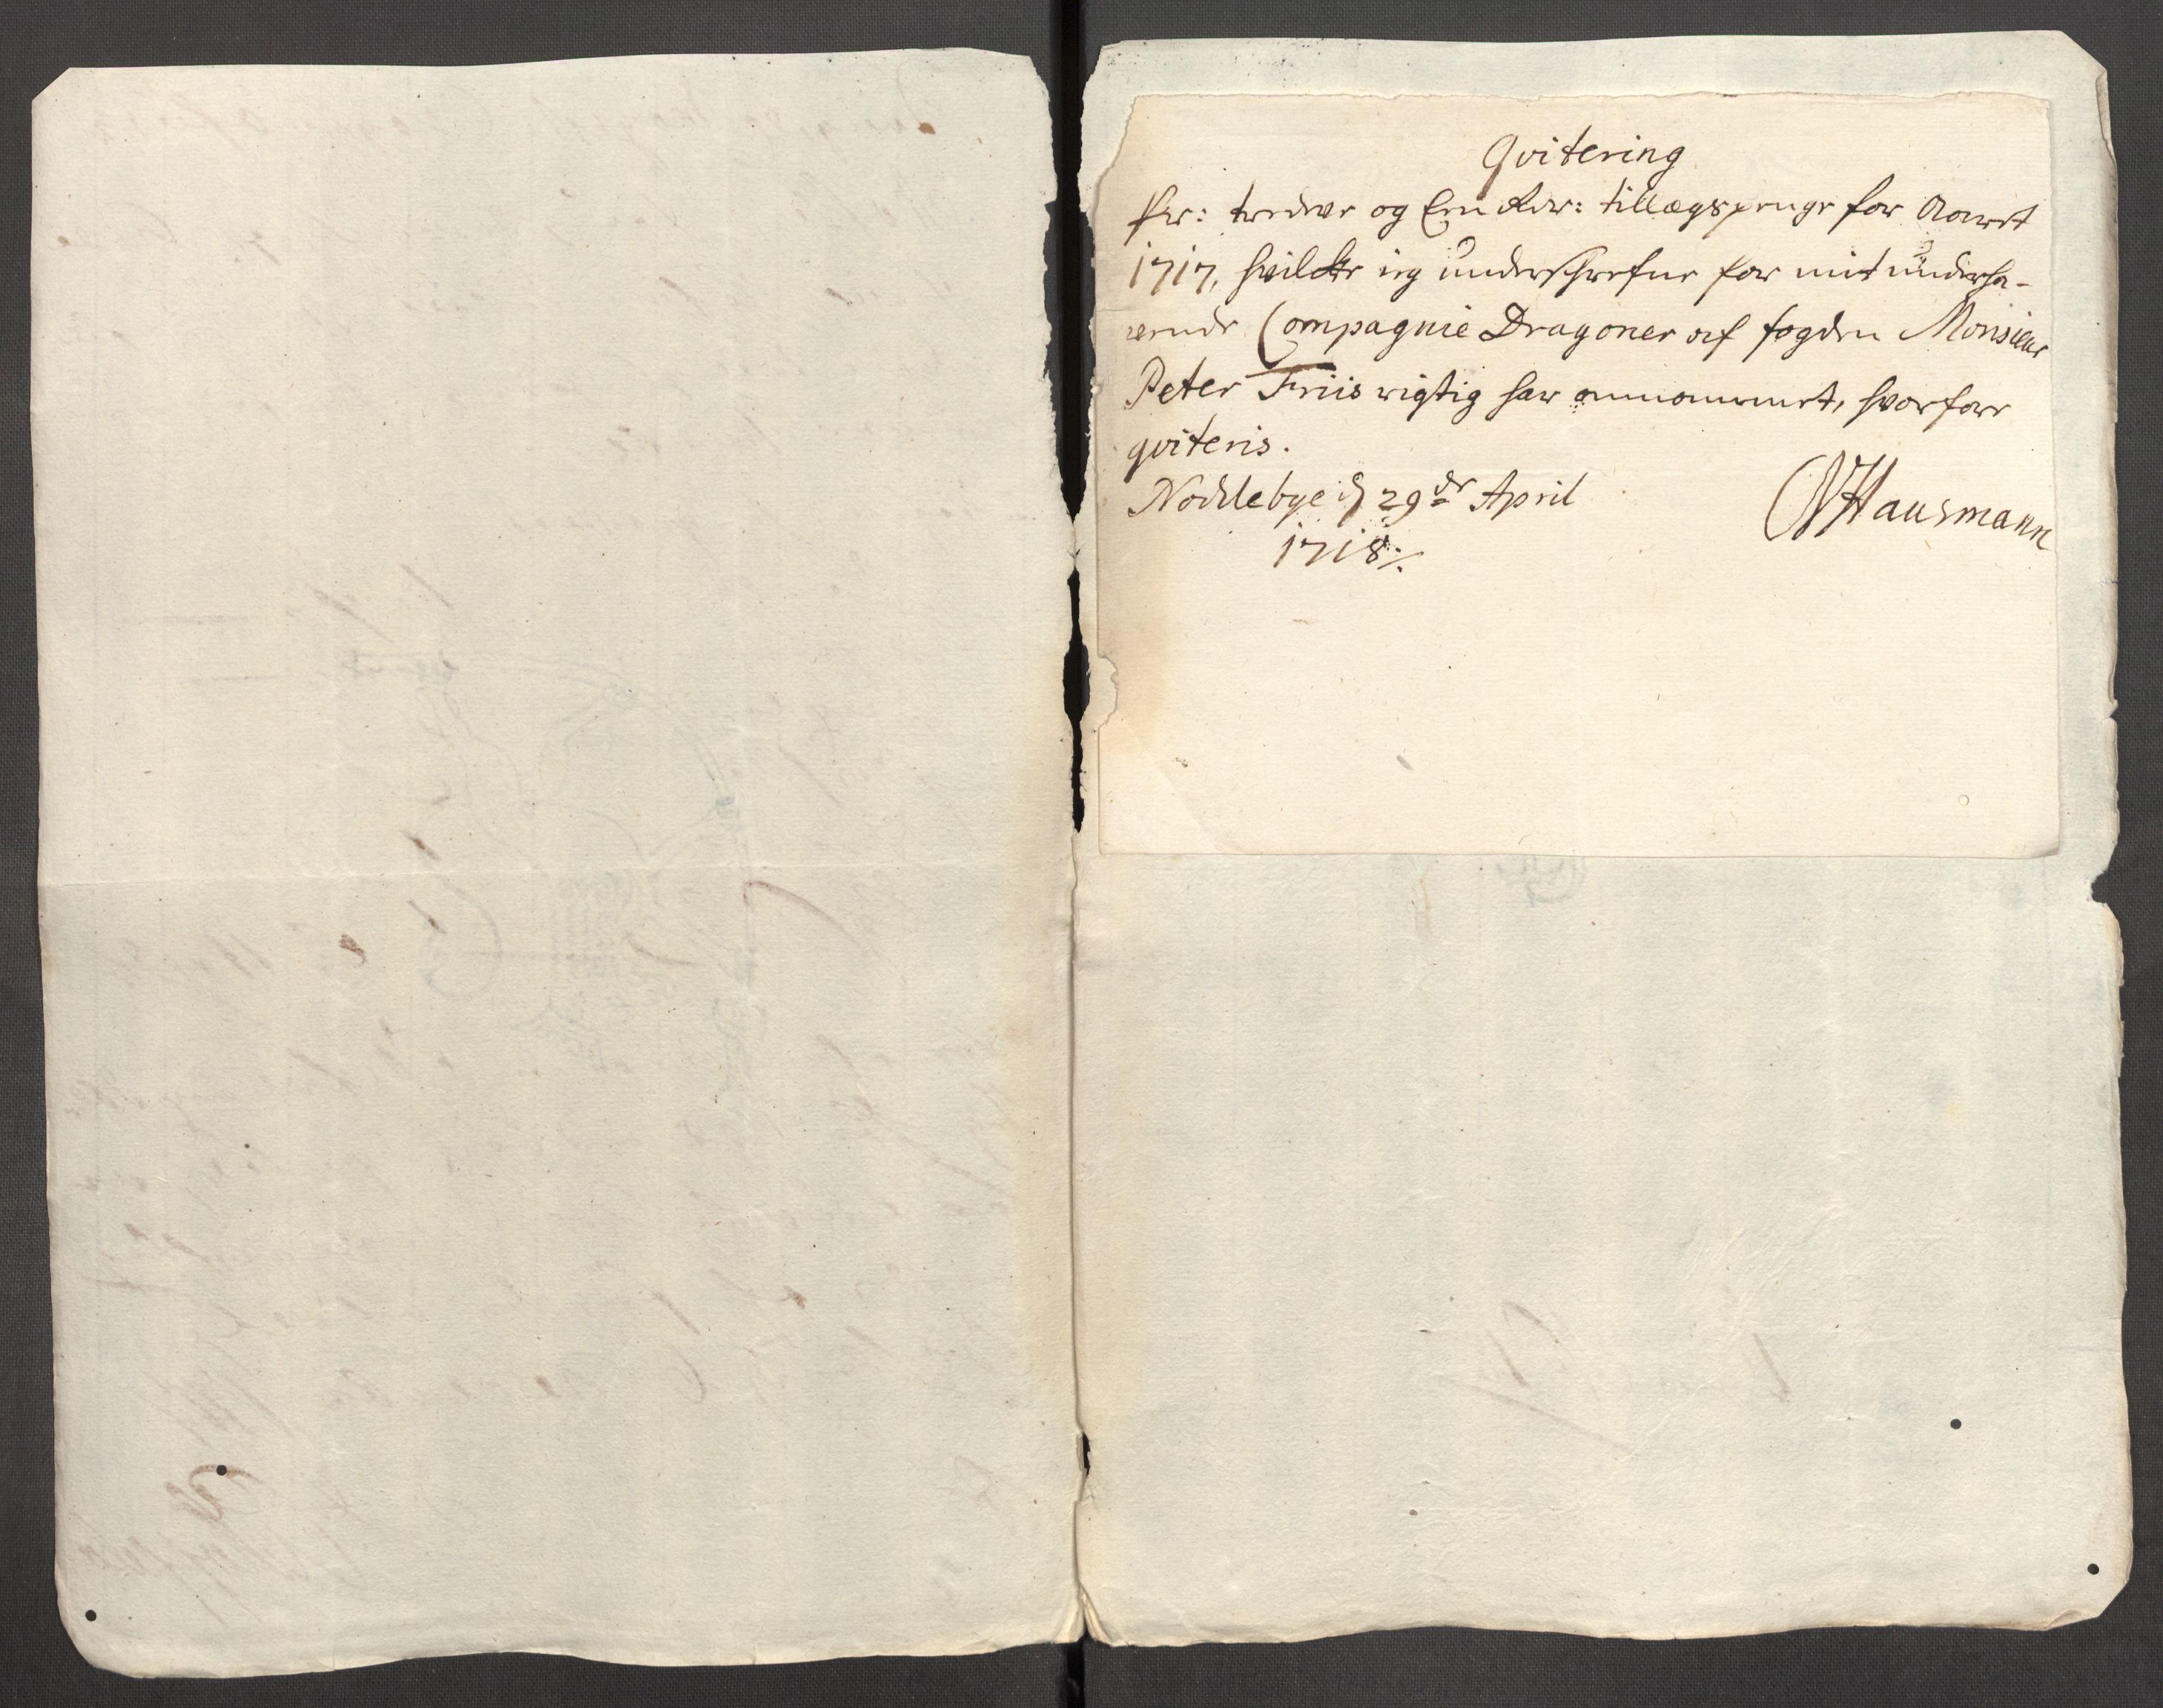 Qvitering
for: tredve og Een Rdr: tillægspenge for Aaret
1717, hvilcke ieg underschrefne for mit underha-
vende Compagnie Dragoner af fogden Monsieur
Peter Friis rigtig har annammet, hvorfore
qviteris.
Nochlebye d 29de April
1718 ⁒
NHausmann